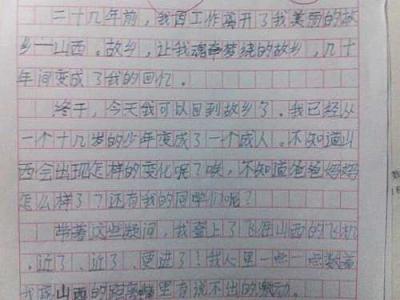 二十几年前，我因工作离开了我美丽的故
乡—山西。故乡，让我魂牵梦绕的故乡，几十
年间变成了我的回忆。
终于，今天我可以回到故乡了。我已经从
一个十几岁的少年变成了一个成人。不知道山
西会出现怎样的变化呢？唉，不知道爸爸妈妈
怎么样了？还有我的同学们呢？
带着这些疑问，我登上了飞回山西的飞机
。近了、近了、更近了！我心里一些一些数着
我离山西的距离 里有说不出的激动。